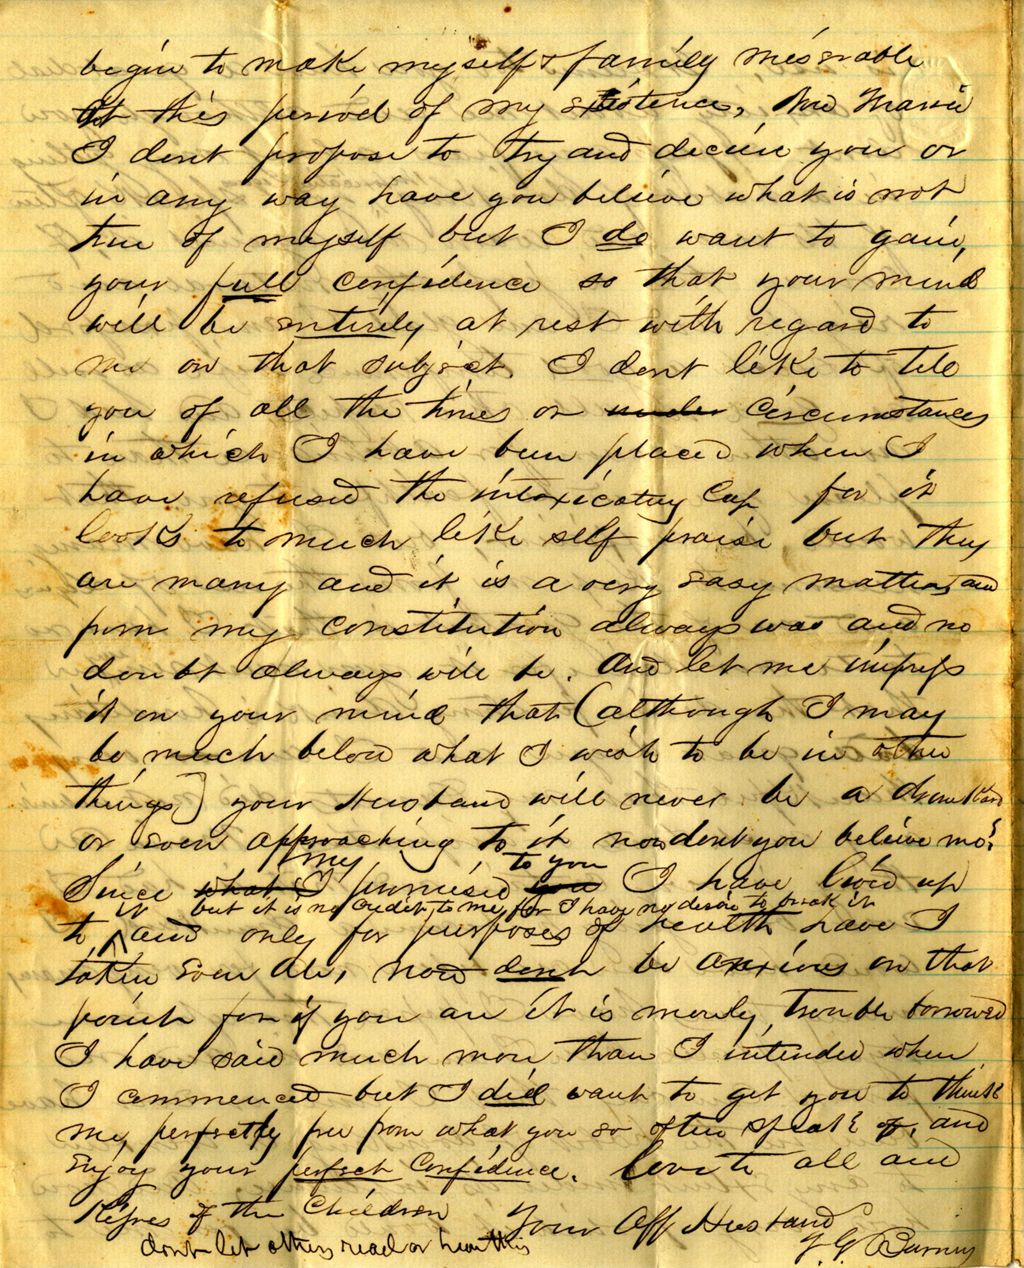 begin to make myself & family miserable
At this period of my existence, Now Maria
I dont propose to try and decieve you or
in any way have you believe what is not
true of myself but I do want to gain,
your full confidence so that your mind
will be entirely at rest with regard to
me on that subject. I dont like to tell
you of all the times or under circumstances
in which I have been placed when I
have refused the intoxicating Cup for it
looks to much like self praise but they
are many and it is a very easy matter, and
from my constitution always was and no
doubt always will be. And let me impress
it on your mind that (although I may
be much below what I wish to be in other
things) your Husband will never be a drunkard
or even approaching to it now dont you believe me?
Since what I my promised you to you I have lived up
to it but it is no credit to me for I have no desire to break it
and only for purposes of health have I
taken even Ale, now dont be anxious on that
point for if you are it is merely trouble borrowed
I have said much more than I intended when
I commenced but I did want to get you to think
me, perfectly free from what you so often speak of, and
enjoy your perfect confidence. Love to all and
Kisses of the Children
Your Aff Husband
dont let others read or hear this
Barney